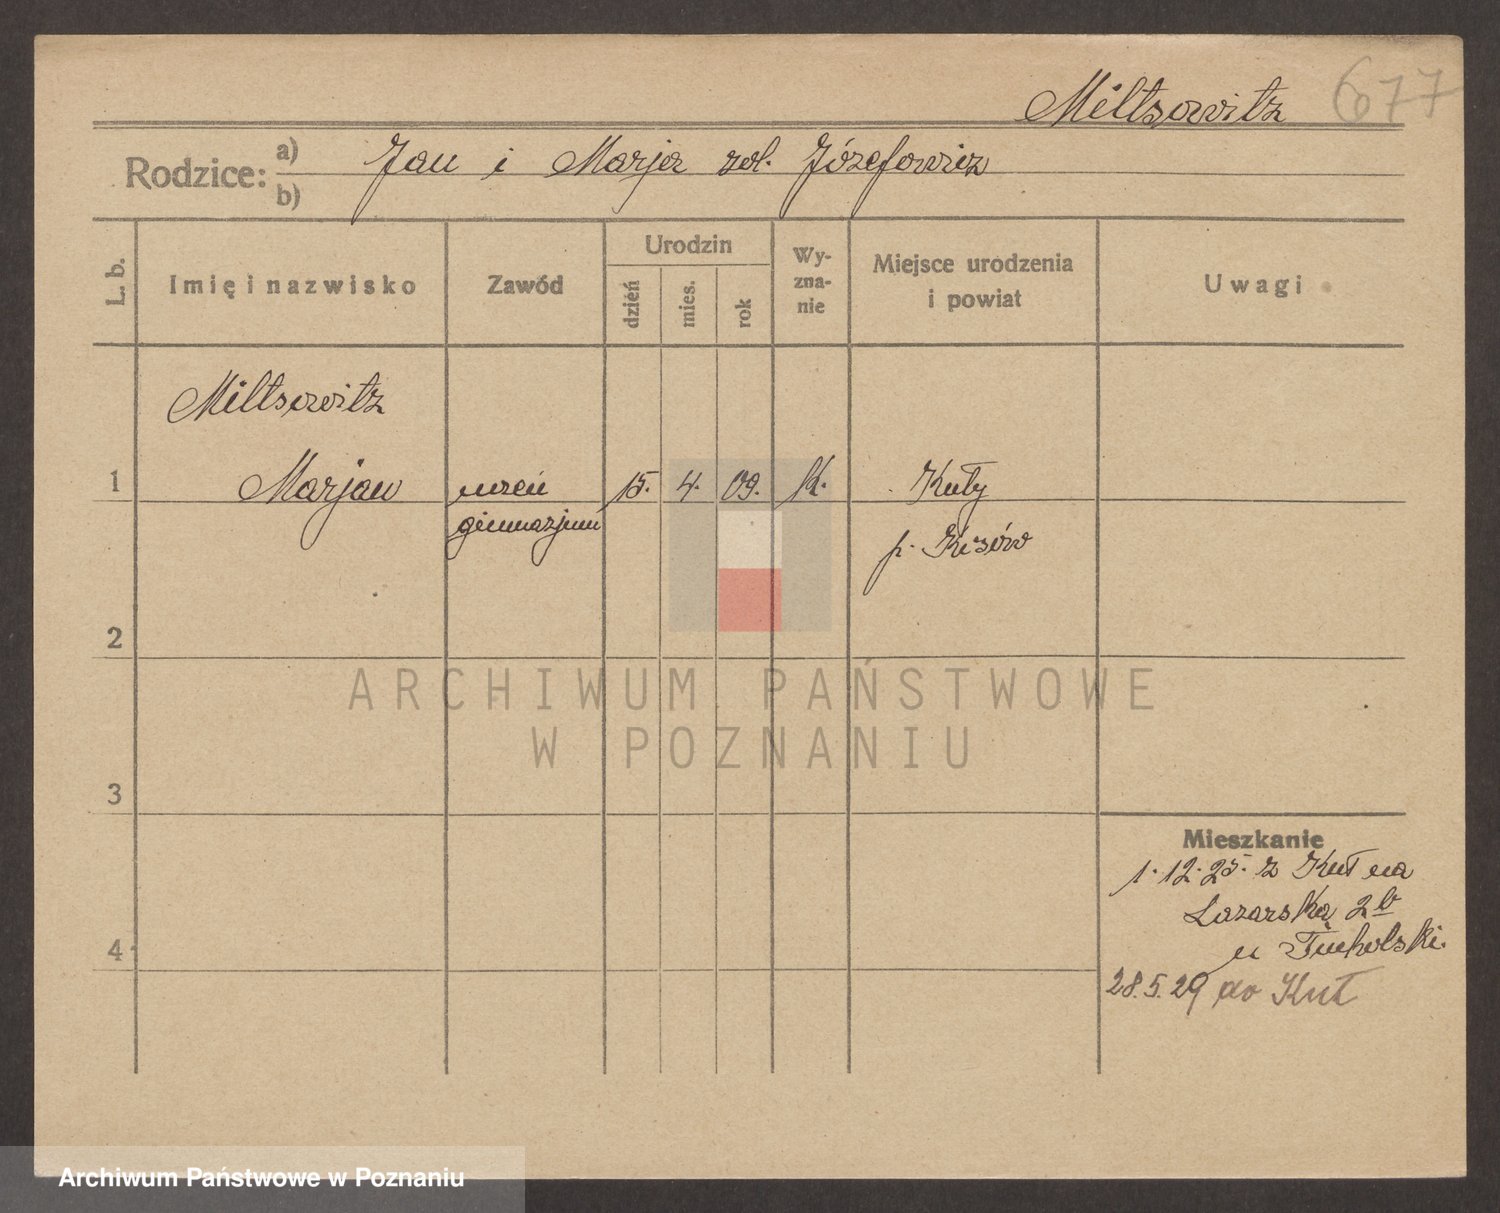 Miltsowitz 677
Rodzice: a) Jan i Marja zd. Józefowicz
b)
L. b. Imię i nazwisko Zawód Urodzin dzień mies. rok Wy-zna-nie Miejsce urodzenia i powiat Uwagi
Miltsowitz
1 Marjan uczeń 15. 4. 09. K. Kuty
gimnazjum p. Kosów
2
3
Mieszkanie
1.12.25. z Kut na
Lazarską 2b
4 u Tucholski.
28.5.29 do Kut
ARCHIWUM PAŃSTWOWE
W POZNANIU
Archiwum Państwowe w Poznaniu